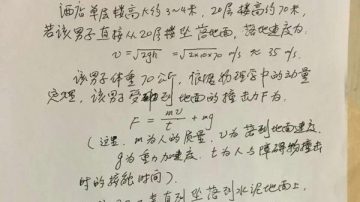 酒店单层楼高大约3~4米，20层楼高约70米，
若该男子直接从20层楼坠落地面，落地速度为
v = √2gh = √2×10×70 m/s ≈ 35 m/s.
该男子体重70公斤，根据物理学中的动量
定理，该男子受到地面的撞击力F为
F = mv/t + mg
（这里，m为人的质量，v为落到地面速度
g为重力加速度，t为人与障碍物撞击
时的接触时间）.
直到坠落到水泥地面上，